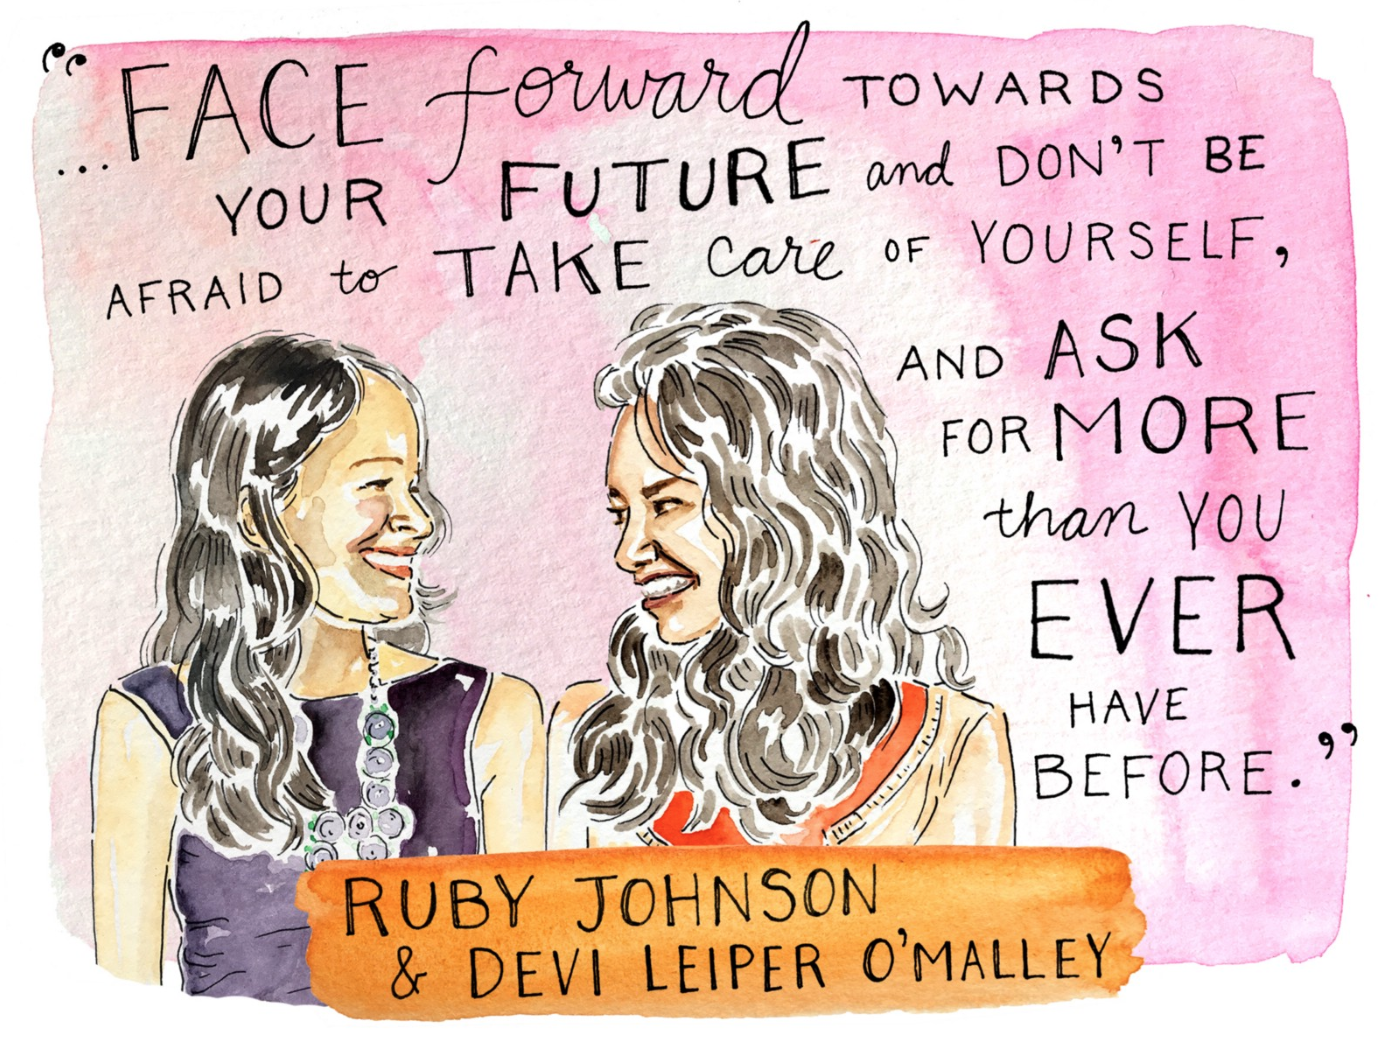 “...FACE forward TOWARDS
YOUR FUTURE and DON'T BE
AFRAID to TAKE care OF YOURSELF,
AND ASK
FOR MORE
than YOU
EVER
HAVE
BEFORE.”
RUBY JOHNSON
& DEVI LEIPER O'MALLEY